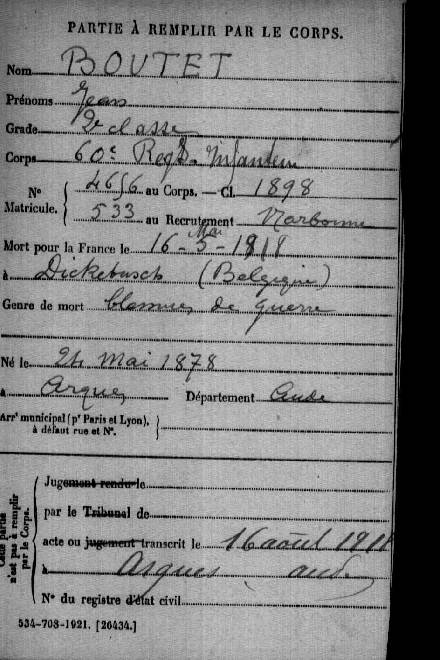 PARTIE À REMPLIR PAR LE CORPS.
Nom BOUTET
Prénoms Jean
Grade 2e classe
Corps 60e Regt. Infanterie
N° Matricule. 4656 au Corps. — Cl. 1898
533 au Recrutement Narbonne
Mai
Mort pour la France le 16-5-1918
à Dickebusch (Belgique)
Genre de mort blessures de guerre
Né le 24 Mai 1878
à Arques Département Aude
Arrt municipal (pr Paris et Lyon),
à défaut rue et N°.
Cette partie n'est pas à remplir par le Corps.
Jugement rendu le
par le Tribunal de
acte ou jugement transcrit le 16 août 1918
à Arques aude
N° du registre d'état civil
534-708-1921. [26434.]